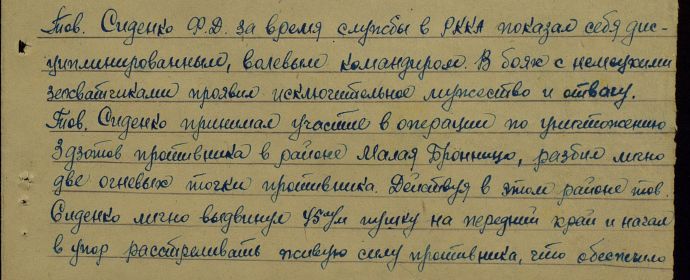 Тов. Сиденко Ф.Д. за время службы в РККА показал себя дис-
циплинированным, волевым командиром. В боях с немецкими
захватчиками проявил исключительное мужество и отвагу.
Тов. Сиденко принимал участие в операции по уничтожению
3 дзотов противника в районе Малая Бронница, разбил лично
две огневых точки противника. Действуя в этом районе тов.
Сиденко лично выдвинул 45 м/м пушку на передний край и начал
в упор расстреливать живую силу противника, что обеспечило